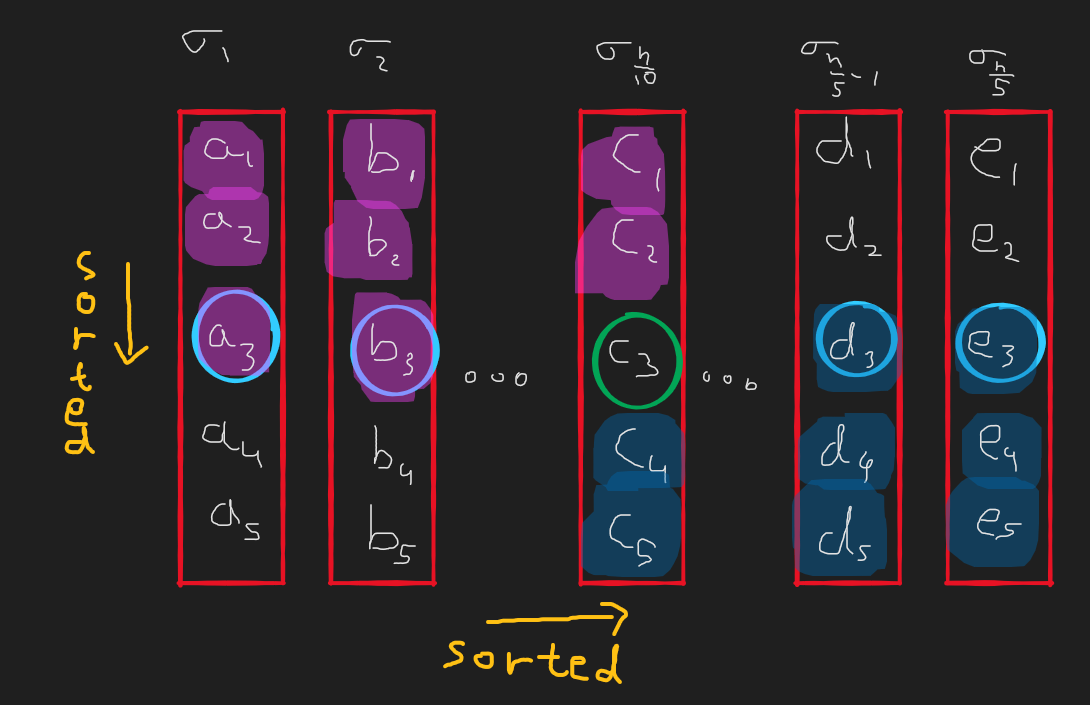 σ₁ σ₂ σ_{n/10} σ_{n/5 - 1} σ_{n/5}
a₁ b₁ c₁ d₁ e₁
a₂ b₂ c₂ d₂ e₂
a₃ b₃ ∘∘∘ c₃ ∘∘∘ d₃ e₃
a₄ b₄ c₄ d₄ e₄
a₅ b₅ c₅ d₅ e₅
sorted
sorted